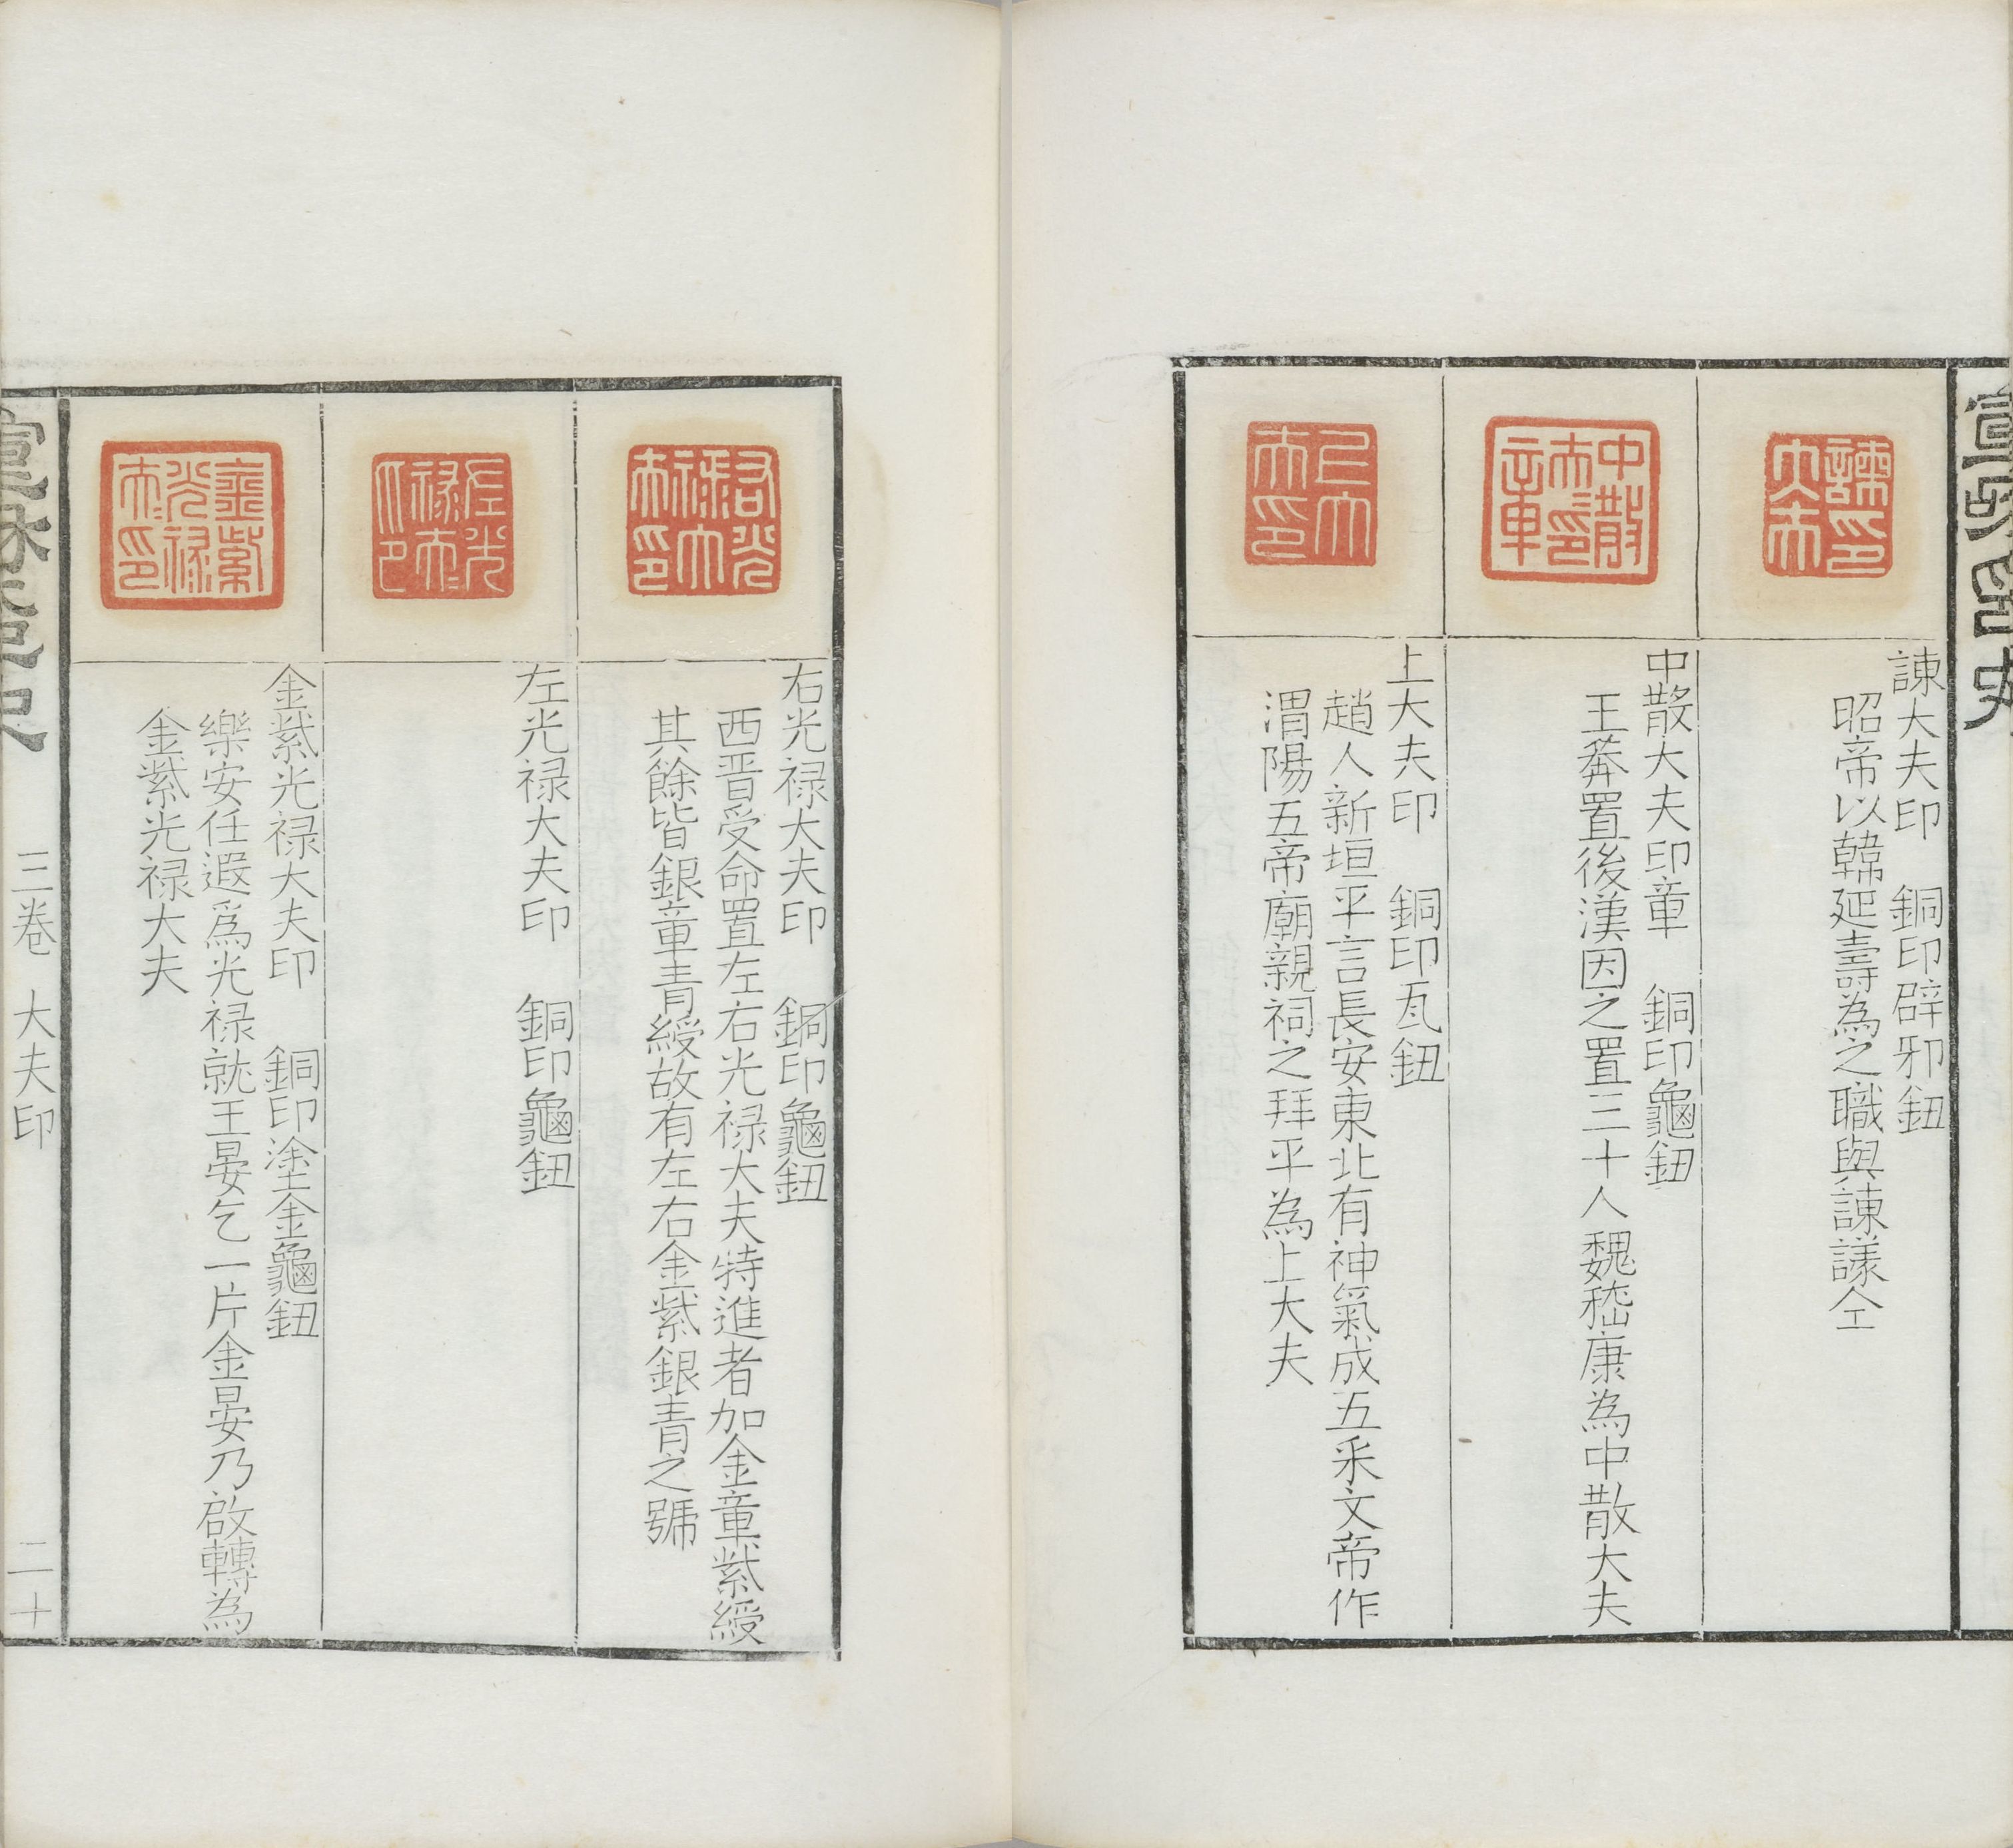 宣和集古印史
諫大夫印
諫大夫印　銅印辟邪鈕
昭帝以韓延壽為之職與諫議仝
中散大夫印章
中散大夫印章　銅印龜鈕
王莽置後漢因之置三十人魏嵇康為中散大夫
上大夫印
上大夫印　銅印瓦鈕
趙人新垣平言長安東北有神氣成五采文帝作
渭陽五帝廟親祠之拜平為上大夫
右光禄大夫印
右光禄大夫印　銅印龜鈕
西晋受命置左右光禄大夫特進者加金章紫綬
其餘皆銀章青綬故有左右金紫銀青之號
左光禄大夫印
左光禄大夫印　銅印龜鈕
金紫光禄大夫印
金紫光禄大夫印　銅印塗金龜鈕
樂安任遐爲光禄就王晏乞一片金晏乃啟轉為
金紫光禄大夫
三卷　大夫印　二十